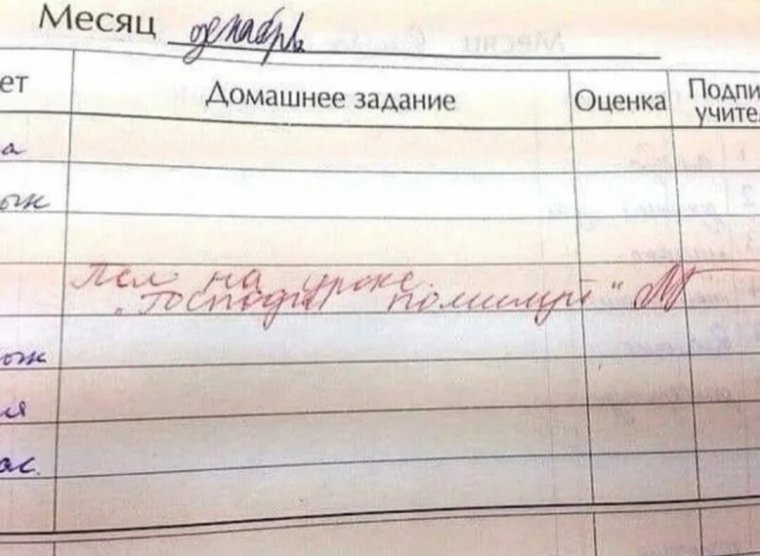 Месяц декабрь
ет
Домашнее задание
Оценка
Подпи
учител
а
ык
Пел на уроке
"Господи помилуй"
ык
ия
ас.